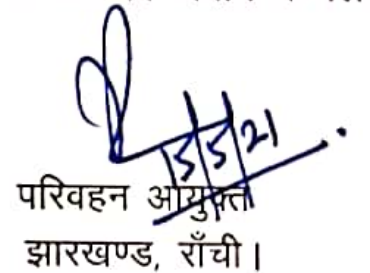 15/5/21
परिवहन आयुक्त
झारखण्ड, राँची।